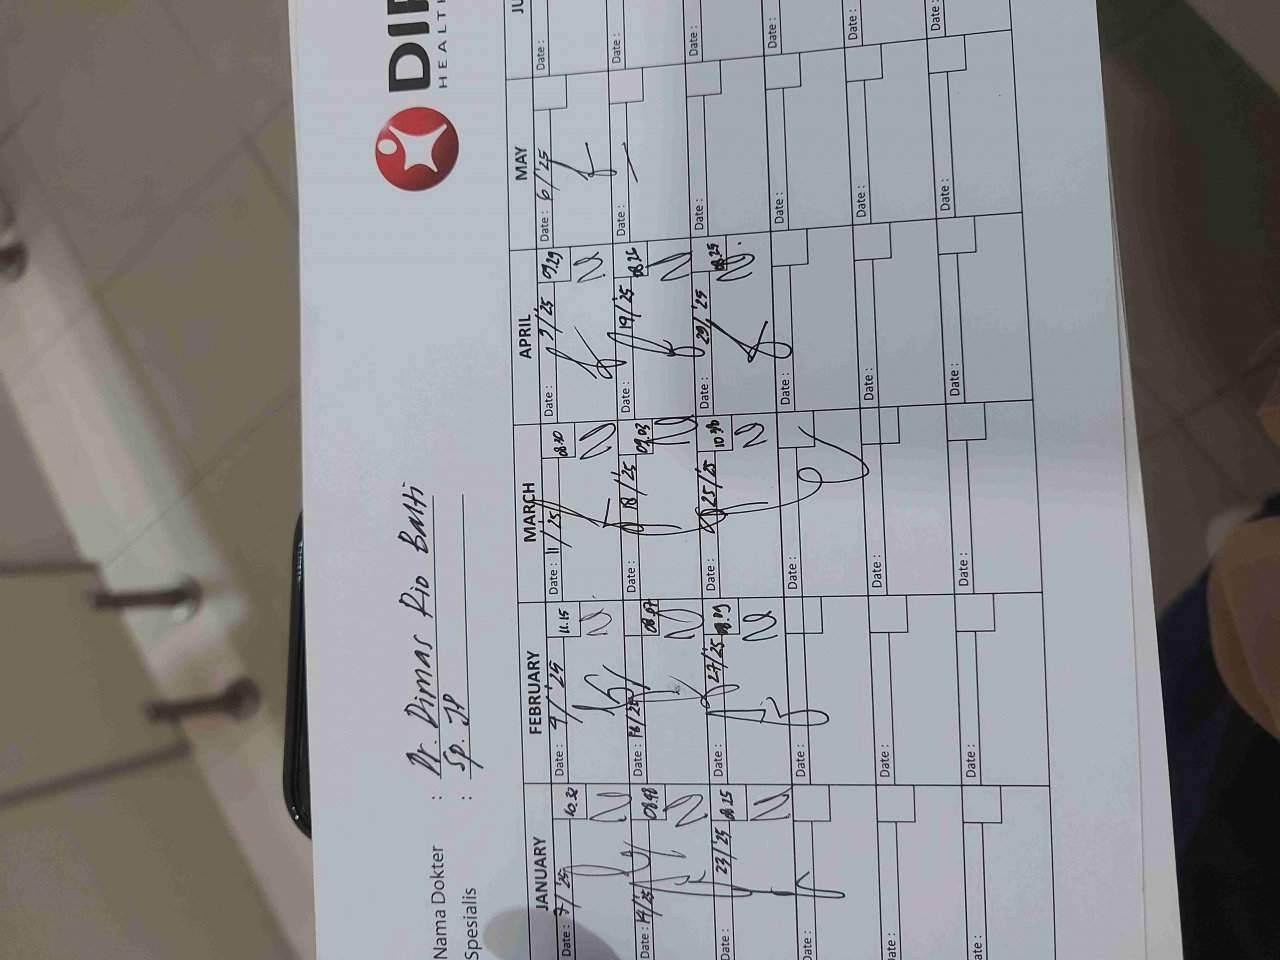 DIP
HEALTH
Nama Dokter : Dr. Dimas Rio Balti
Spesialis : Sp. JP
JANUARY FEBRUARY MARCH APRIL MAY JU
Date : 7/'25 10.32 Date : 4/'25 11.15 Date : 11/'25 08.30 Date : 7/'25 09.29 Date : 6/'25 Date :
Date : 14/'25 08.48 Date : 18/'25 08.07 Date : 18/'25 09.03 Date : 19/'25 08.26 Date : Date :
Date : 23/'25 08.25 Date : 27/'25 Date : 25/'25 Date : 29/'25 08.25 Date : Date :
Date : Date : Date : Date : Date :
Date : Date : Date : Date : Date :
ate : Date : Date : Date : Date : Date :